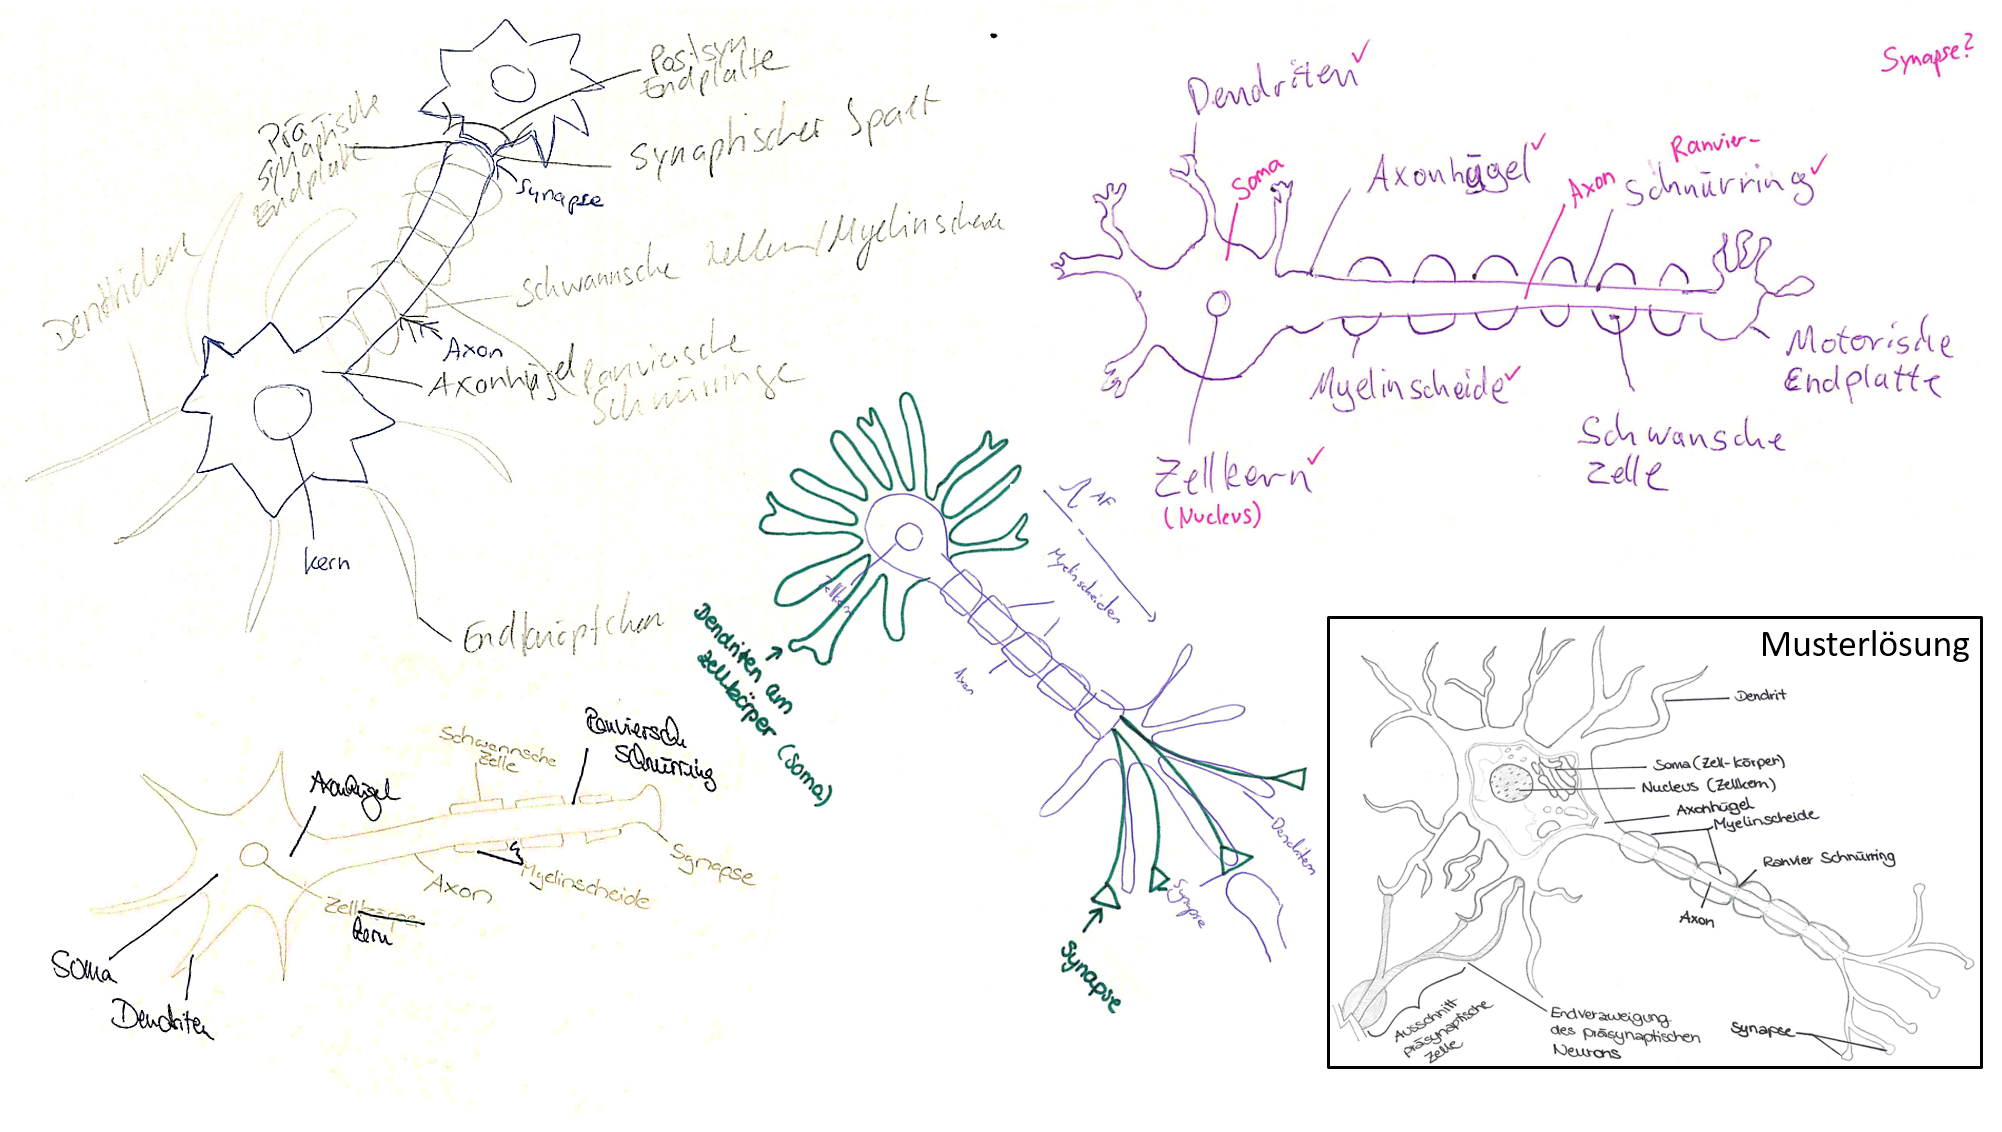 Postsyn
Endplatte
Prä
synaptische
Endplatte
Synaptischer Spalt
Synapse
Dentriden
Schwannsche Zellen/Myelinscheide
Axon
Axonhügel
Ranviersche
Schnürringe
Kern
Endknöpfchen
Synapse?
Dendriten
Soma
Axonhügel
Axon
Ranvier-
Schnürring
Motorische
Endplatte
Myelinscheide
Schwansche
Zelle
Zellkern
(Nucleus)
Zellkern
Myelinscheiden
Axon
Dendriten am
Zellkörper (Soma)
Dendriten
Synapse
Synapse
Axonhügel
Schwannsche
Zelle
Ranviersche
Schnürring
Synapse
Myelinscheide
Axon
Zellkörper
kern
Soma
Dendriten
Musterlösung
Dendrit
Soma (Zell-Körper)
Nucleus (Zellkern)
Axonhügel
Myelinscheide
Ranvier Schnürring
Axon
Ausschnitt
präsynaptische
Zelle
Endverzweigung
des präsynaptischen
Neurons
Synapse